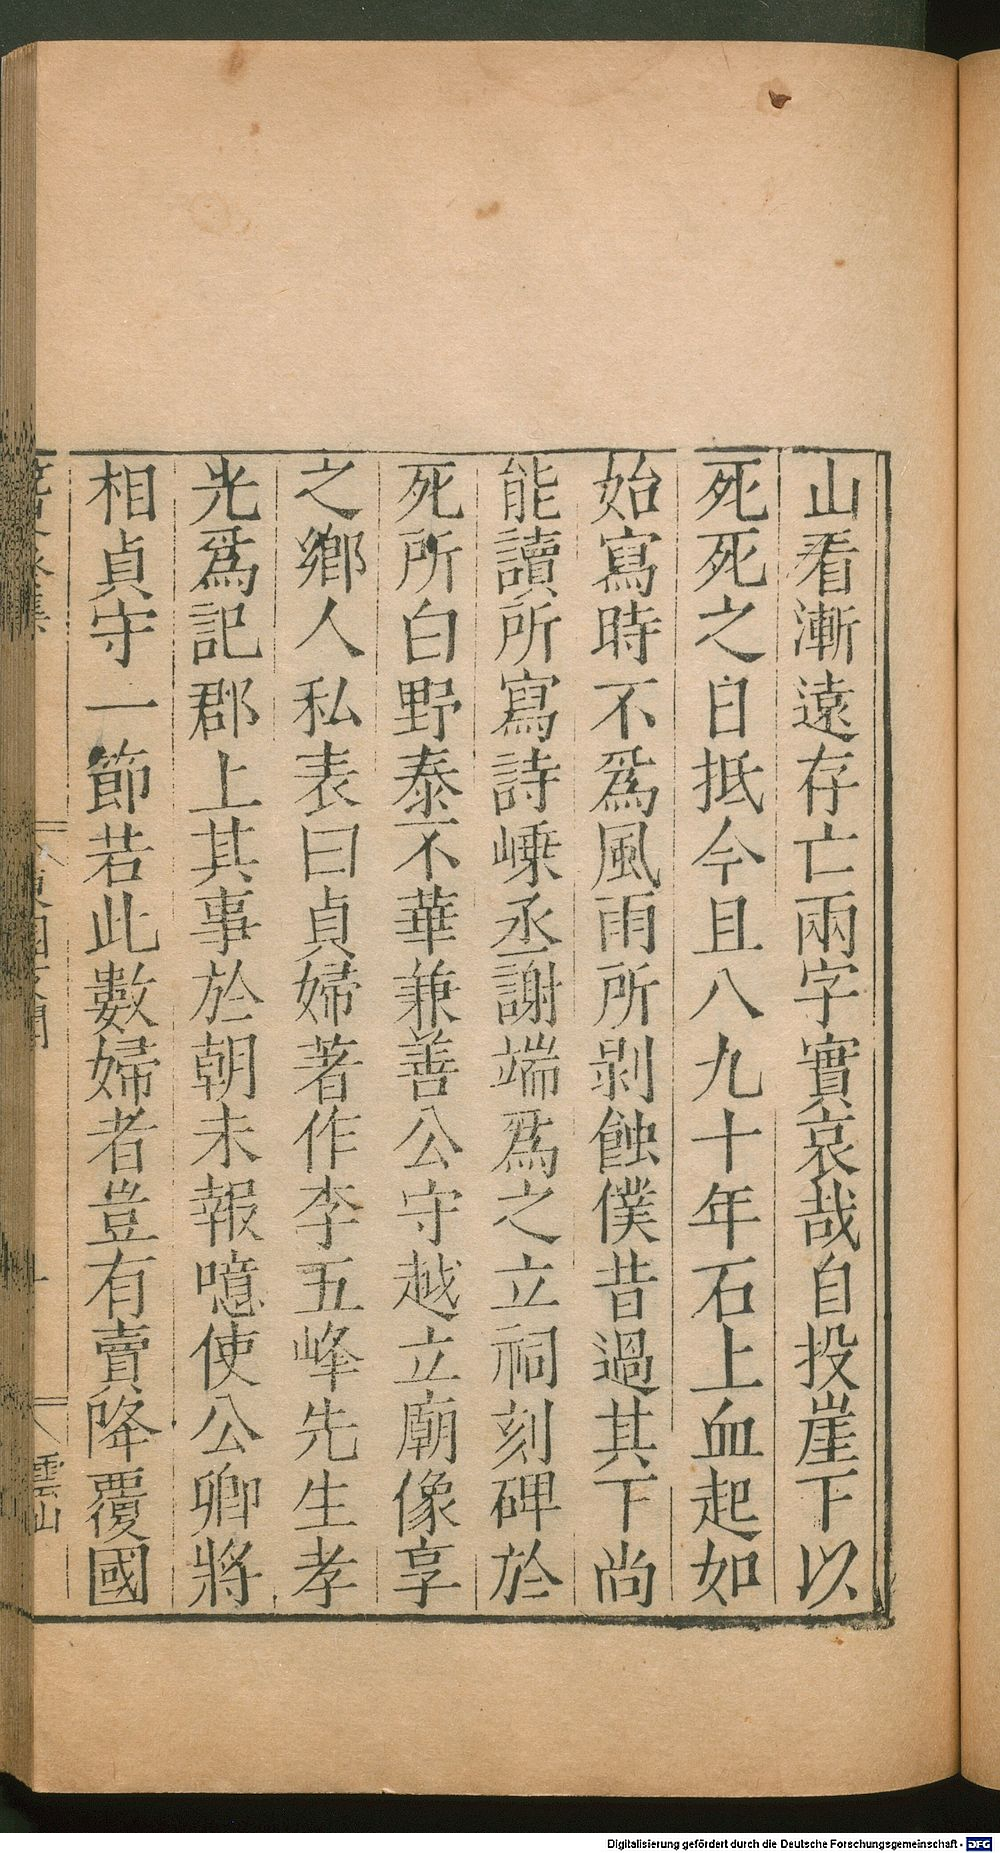 山看漸遠存亡兩字實哀哉自投崖下以
死死之日抵今且八九十年石上血起如
始寫時不爲風雨所剝蝕僕昔過其下尚
能讀所寫詩嵊丞謝端爲之立祠刻碑於
死所白野泰不華兼善公守越立廟像享
之鄉人私表曰貞婦著作李五峰先生孝
光爲記郡上其事於朝未報噫使公卿將
相貞守一節若此數婦者豈有賣降覆國
雲山
Digitalisierung gefördert durch die Deutsche Forschungsgemeinschaft - DFG